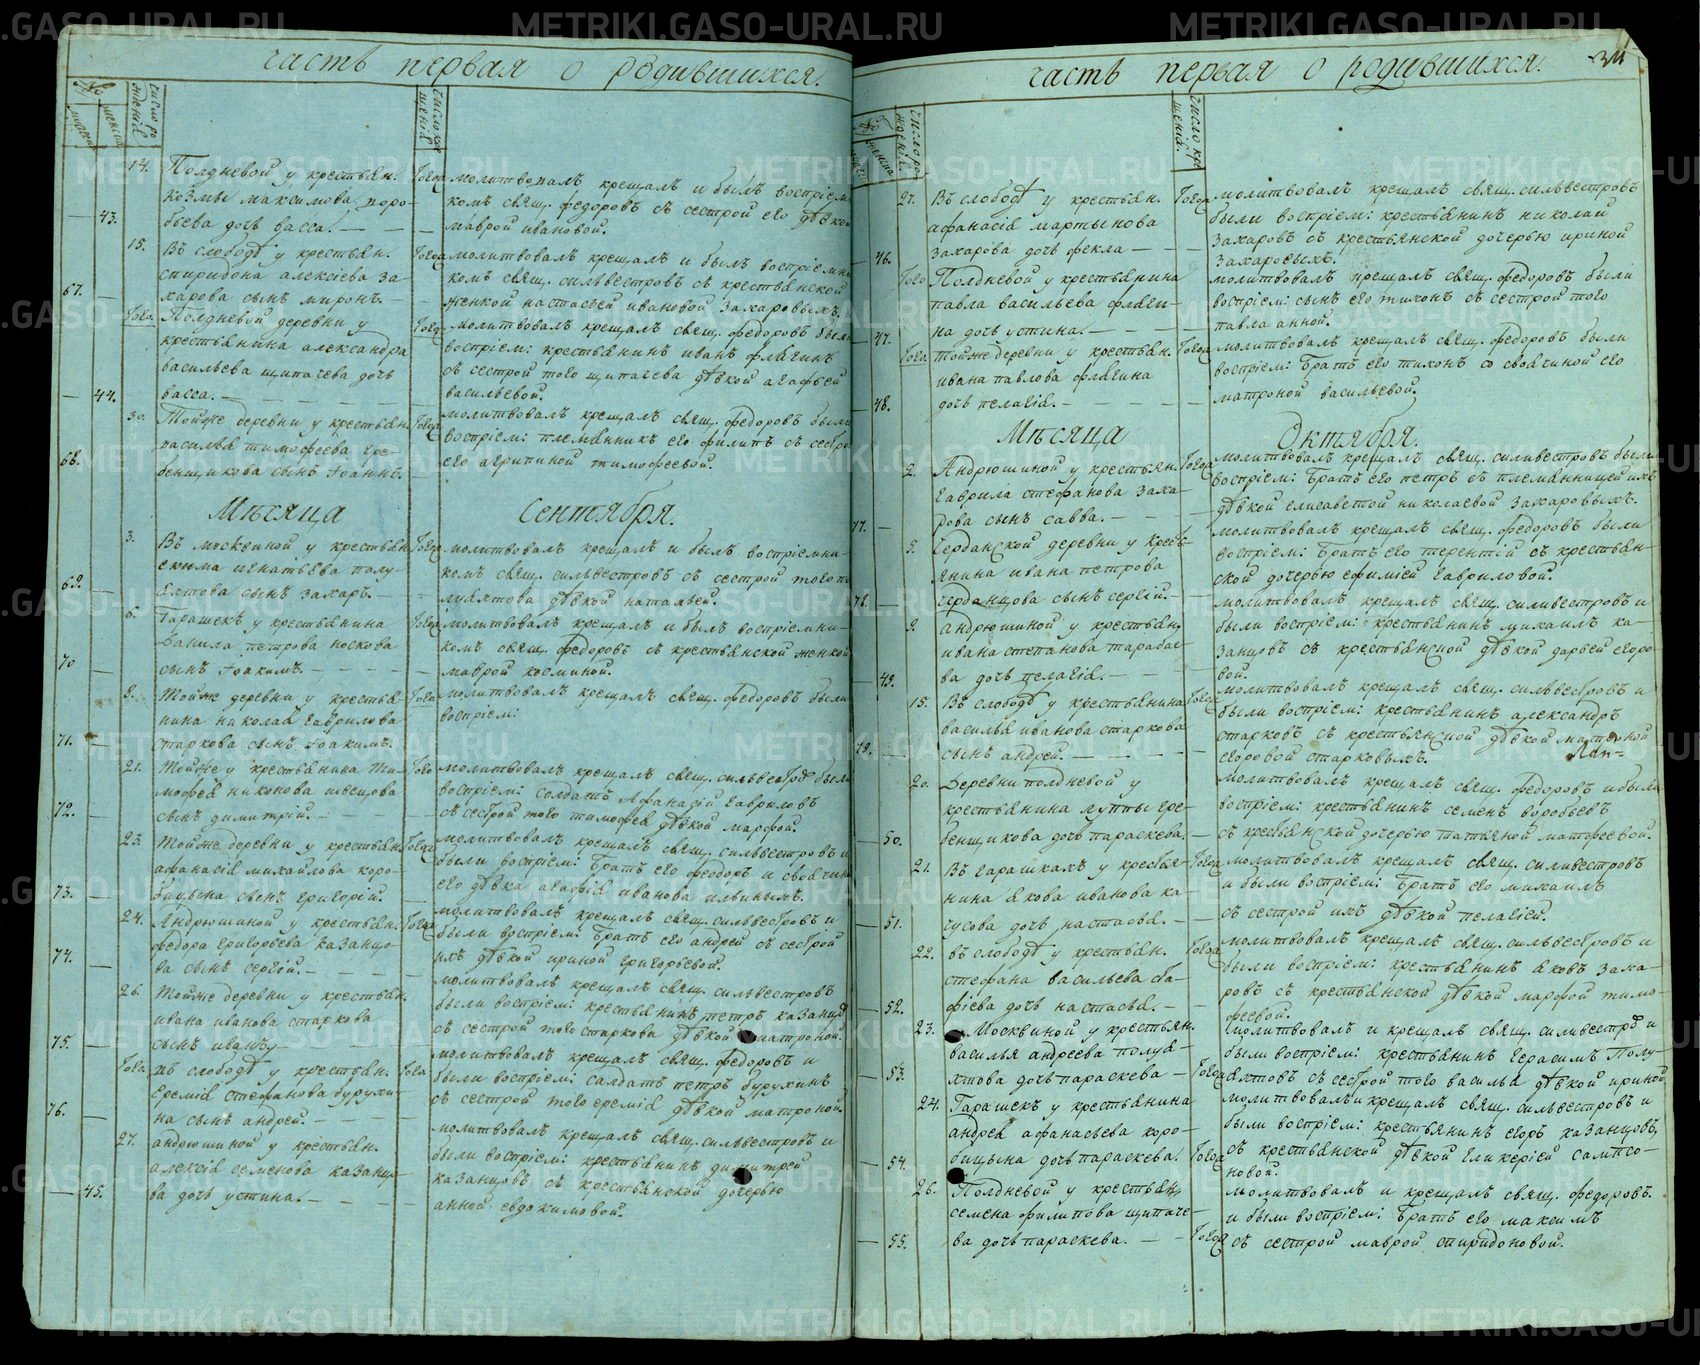 часть первая о родившихся.
№
мужеск
женска
число ро
жденiя
число кре
щенiя
14.
Полдневой у крестьян.
козмы максимова воро-
43.
бьева дочь васса. —
Тогда
молитвовалъ крещалъ и былъ воспрiем
комъ свящ. федоровъ съ сестрой его дѣвкой
маврой ивановой.
15.
Въ слободѣ у крестьян.
спиридона алексiева за-
67.
харова сынъ миронъ. —
Тогда
молитвовалъ крещалъ и былъ воспрiемни
комъ свящ. сильвестровъ съ крестьянской
женкой настасьей ивановой захаровыхъ.
Того
Полдневой деревни у
крестьянина александра
васильева щипачева дочь
44.
васса. —
Тогда
молитвовалъ крещалъ свящ. федоровъ были
воспрiем: крестьянинъ иванъ флягинъ
съ сестрой того щипачева дѣвкой агафьей
васильевой.
30.
Тойже деревни у крестьян.
василья тимофеева гре-
68.
бенщикова сынъ Iоаннъ.
Тогда
молитвовалъ крещалъ свящ. федоровъ были
воспрiем: племянникъ его филипъ съ сестро
его агрипиной тимофеевой.
Мѣсяца Сентября.
3.
Въ москвиной у крестьян
екима игнатьева полу-
69.
яхтова сынъ захаръ. —
Тогда
молитвовалъ крещалъ и былъ воспрiемни-
комъ свящ. сильвестровъ съ сестрой того по
луяхтова дѣвкой натальей.
6.
Гарашекъ у крестьянина
Данила петрова носкова
70
сынъ Iоакимъ. —
Тогда
молитвовалъ крещалъ и былъ воспрiемни-
комъ свящ. федоровъ съ крестьянской женкой
маврой козминой.
8.
Тойже деревни у крестья
нина николая гаврилова
71.
старкова сынъ Iоакимъ.
Тогда
молитвовалъ крещалъ свящ. федоровъ были
воспрiем:
21.
Тойже у крестьянина ти-
мофея никонова швецова
72.
сынъ димитрiй. —
Того
молитвовалъ крещалъ свящ. сильвестров были
воспрiем: солдатъ Афанасiй гавриловъ
съ сестрой того тимофея дѣвкой марфой.
23.
Тойже деревни у крестьян
афанасiя михайлова коро-
73.
бицына сынъ григорiй. —
Тогда
молитвовалъ крещалъ свящ. сильвестровъ и
были воспрiем: братъ его феодоръ и своячина
его дѣвка агафiя иванова ильиныхъ.
24.
Андрюшиной у крестьян.
федора григорьева казанцо-
74.
ва сынъ сергiй. —
Тогда
молитвовалъ крещалъ свящ. сильвестровъ и
были воспрiем: братъ его андрей съ сестрой
ихъ дѣвкой ириной григорьевой.
26.
Тойже деревни у крестьян.
ивана иванова старкова
75.
сынъ иванъ
молитвовалъ крещалъ свящ. сильвестровъ
были воспрiем: крестьянинъ петръ казанцов
съ сестрой того старкова дѣвкой матроной.
Того
въ слободѣ у крестьян.
Еремiя стефанова бурухи-
76.
на сынъ андрей. —
Тогда
молитвовалъ крещалъ свящ. федоровъ и
были воспрiем: салдатъ петръ бурухинъ
съ сестрой того еремiя дѣвкой матроной.
27.
андрюшиной у крестьян.
алексiя семенова казанцо-
45.
ва дочь устина. —
молитвовалъ крещалъ свящ. сильвестровъ и
были воспрiем: крестьянинъ димитрей
казанцовъ съ крестьянской дочерью
анной евдокимовой.
часть первая о родившихся.
34
№
женска
число ро
жденiй
число кре
щенiй.
27.
Въ слободѣ у крестьян.
афанасiя мартынова
46.
захарова дочь фекла —
Тогда
молитвовалъ крещалъ свящ. сильвестровъ
были воспрiем: крестьянинъ николай
захаровъ съ крестьянской дочерью ириной
захаровыхъ.
Того
Полдневой у крестьянина
павла васильева флаги-
47.
на дочь устина. —
молитвовалъ крещалъ свящ. федоровъ были
воспрiем: сынъ его тихонъ съ сестрой того
павла анной.
Того
тойже деревни у крестьян.
ивана павлова флягина
48.
дочь пелагiя. —
Тогда
молитвовалъ крещалъ свящ. федоровъ были
воспрiем: братъ его тихонъ со своячиной его
матроной васильевой.
Мѣсяца Октября.
2.
Андрюшиной у крестьян.
гаврила стефанова заха-
77.
рова сынъ савва. —
Тогда
молитвовалъ крещалъ свящ. сильвестровъ были
воспрiем: братъ его петръ съ племянницей ихъ
дѣвкой елисаветой николаевой захаровыхъ.
5.
Черданской деревни у крест-
янина ивана петрова
78.
черданцова сынъ сергiй. —
молитвовалъ крещалъ свящ. федоровъ были
воспрiем: братъ его терентiй съ крестьян-
ской дочерью ефимiей гавриловой.
9.
Андрюшиной у крестьян
ивана степанова тарабае-
49.
ва дочь пелагiя. —
молитвовалъ крещалъ свящ. сильвестровъ и
были воспрiем: крестьянинъ михаилъ ка-
занцовъ съ крестьянской дѣвкой дарьей егоро-
вой.
15.
Въ слободѣ у крестьянина
василья иванова старкова
79.
сынъ андрей. —
Тогда
молитвовалъ крещалъ свящ. сильвестровъ и
были воспрiем: крестьянинъ александръ
старковъ съ крестьянской дѣвкой матроной
егоровой старковыхъ.
20.
Деревни полдневой у
крестьянина луппы гре-
50.
бенщикова дочь параскева. —
молитвовалъ крещалъ свящ. федоровъ и были
воспрiем: крестьянинъ семенъ воробьевъ
съ крестьянской дочерью татьяной матфеевой.
21.
Въ гарашкахъ у крестья-
нина якова иванова ка-
51.
чусова дочь настасья. —
Тогда
молитвовалъ крещалъ свящ. сильвестровъ
и были воспрiем: братъ его михаилъ
съ сестрой ихъ дѣвкой пелагiей.
22.
въ слободѣ у крестьян.
стефана васильева ста-
52.
фiева дочь настасья. —
Тогда
молитвовалъ крещалъ свящ. сильвестровъ и
были воспрiем: крестьянинъ яковъ заха-
ровъ съ крестьянской дѣвкой марфой тимо
феевой.
23.
Москвиной у крестьян.
василья андреева полуя-
53.
хтова дочь параскева —
Тогда
молитвовалъ и крещалъ свящ. сильвестров и
были воспрiем: крестьянинъ герасимъ Полу-
яхтовъ съ сестрой того василья дѣвкой ириной.
24.
Гарашекъ у крестьянина
андрея афанасьева коро-
54.
бицына дочь параскева.
Тогда
молитвовалъ и крещалъ свящ. сильвестровъ и
были воспрiем: крестьянинъ егоръ казанцовъ,
съ крестьянской дѣвкой гликерiей сампсо-
новой.
26.
Полдневой у крестьян
семена филипова щипаче-
55.
ва дочь параскева. —
Тогда
молитвовалъ и крещалъ свящ. федоровъ.
и были воспрiем: братъ его максимъ
съ сестрой маврой спиридоновой.
METRIKI.GASO-URAL.RU